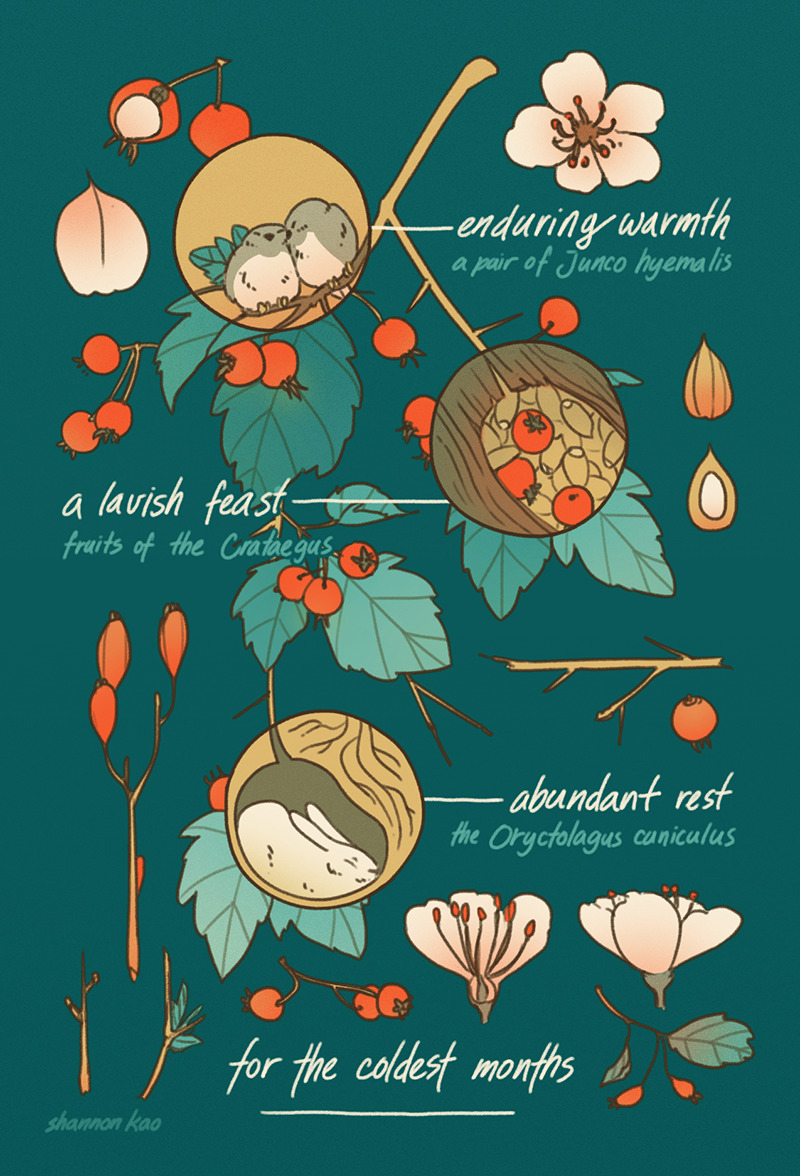 enduring warmth
a pair of Junco hyemalis
a lavish feast
fruits of the Crataegus
abundant rest
the Oryctolagus cuniculus
for the coldest months
shannon kao